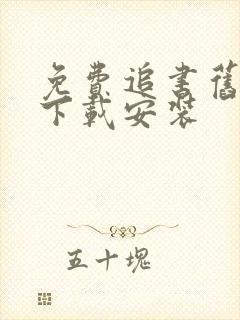 免費追書舊
下載安裝
五十塊